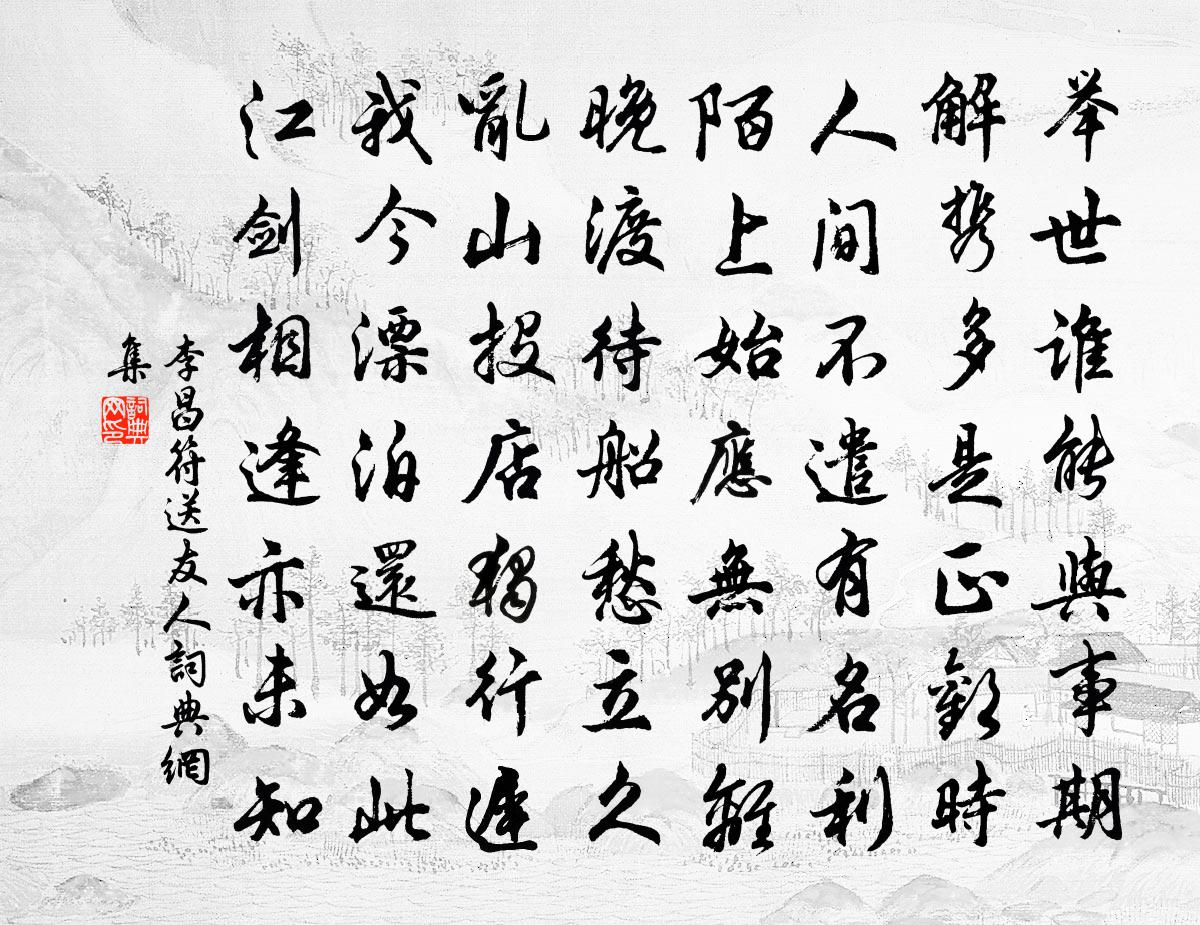 举世谁能與事期
解携多是正歡時
人间不遣有名利
陌上始應無別離
晚渡待船愁立久
亂山投店独行遲
我今漂泊還如此
江剑相逢亦未知
李昌符送友人詞典網
集
詞典网印